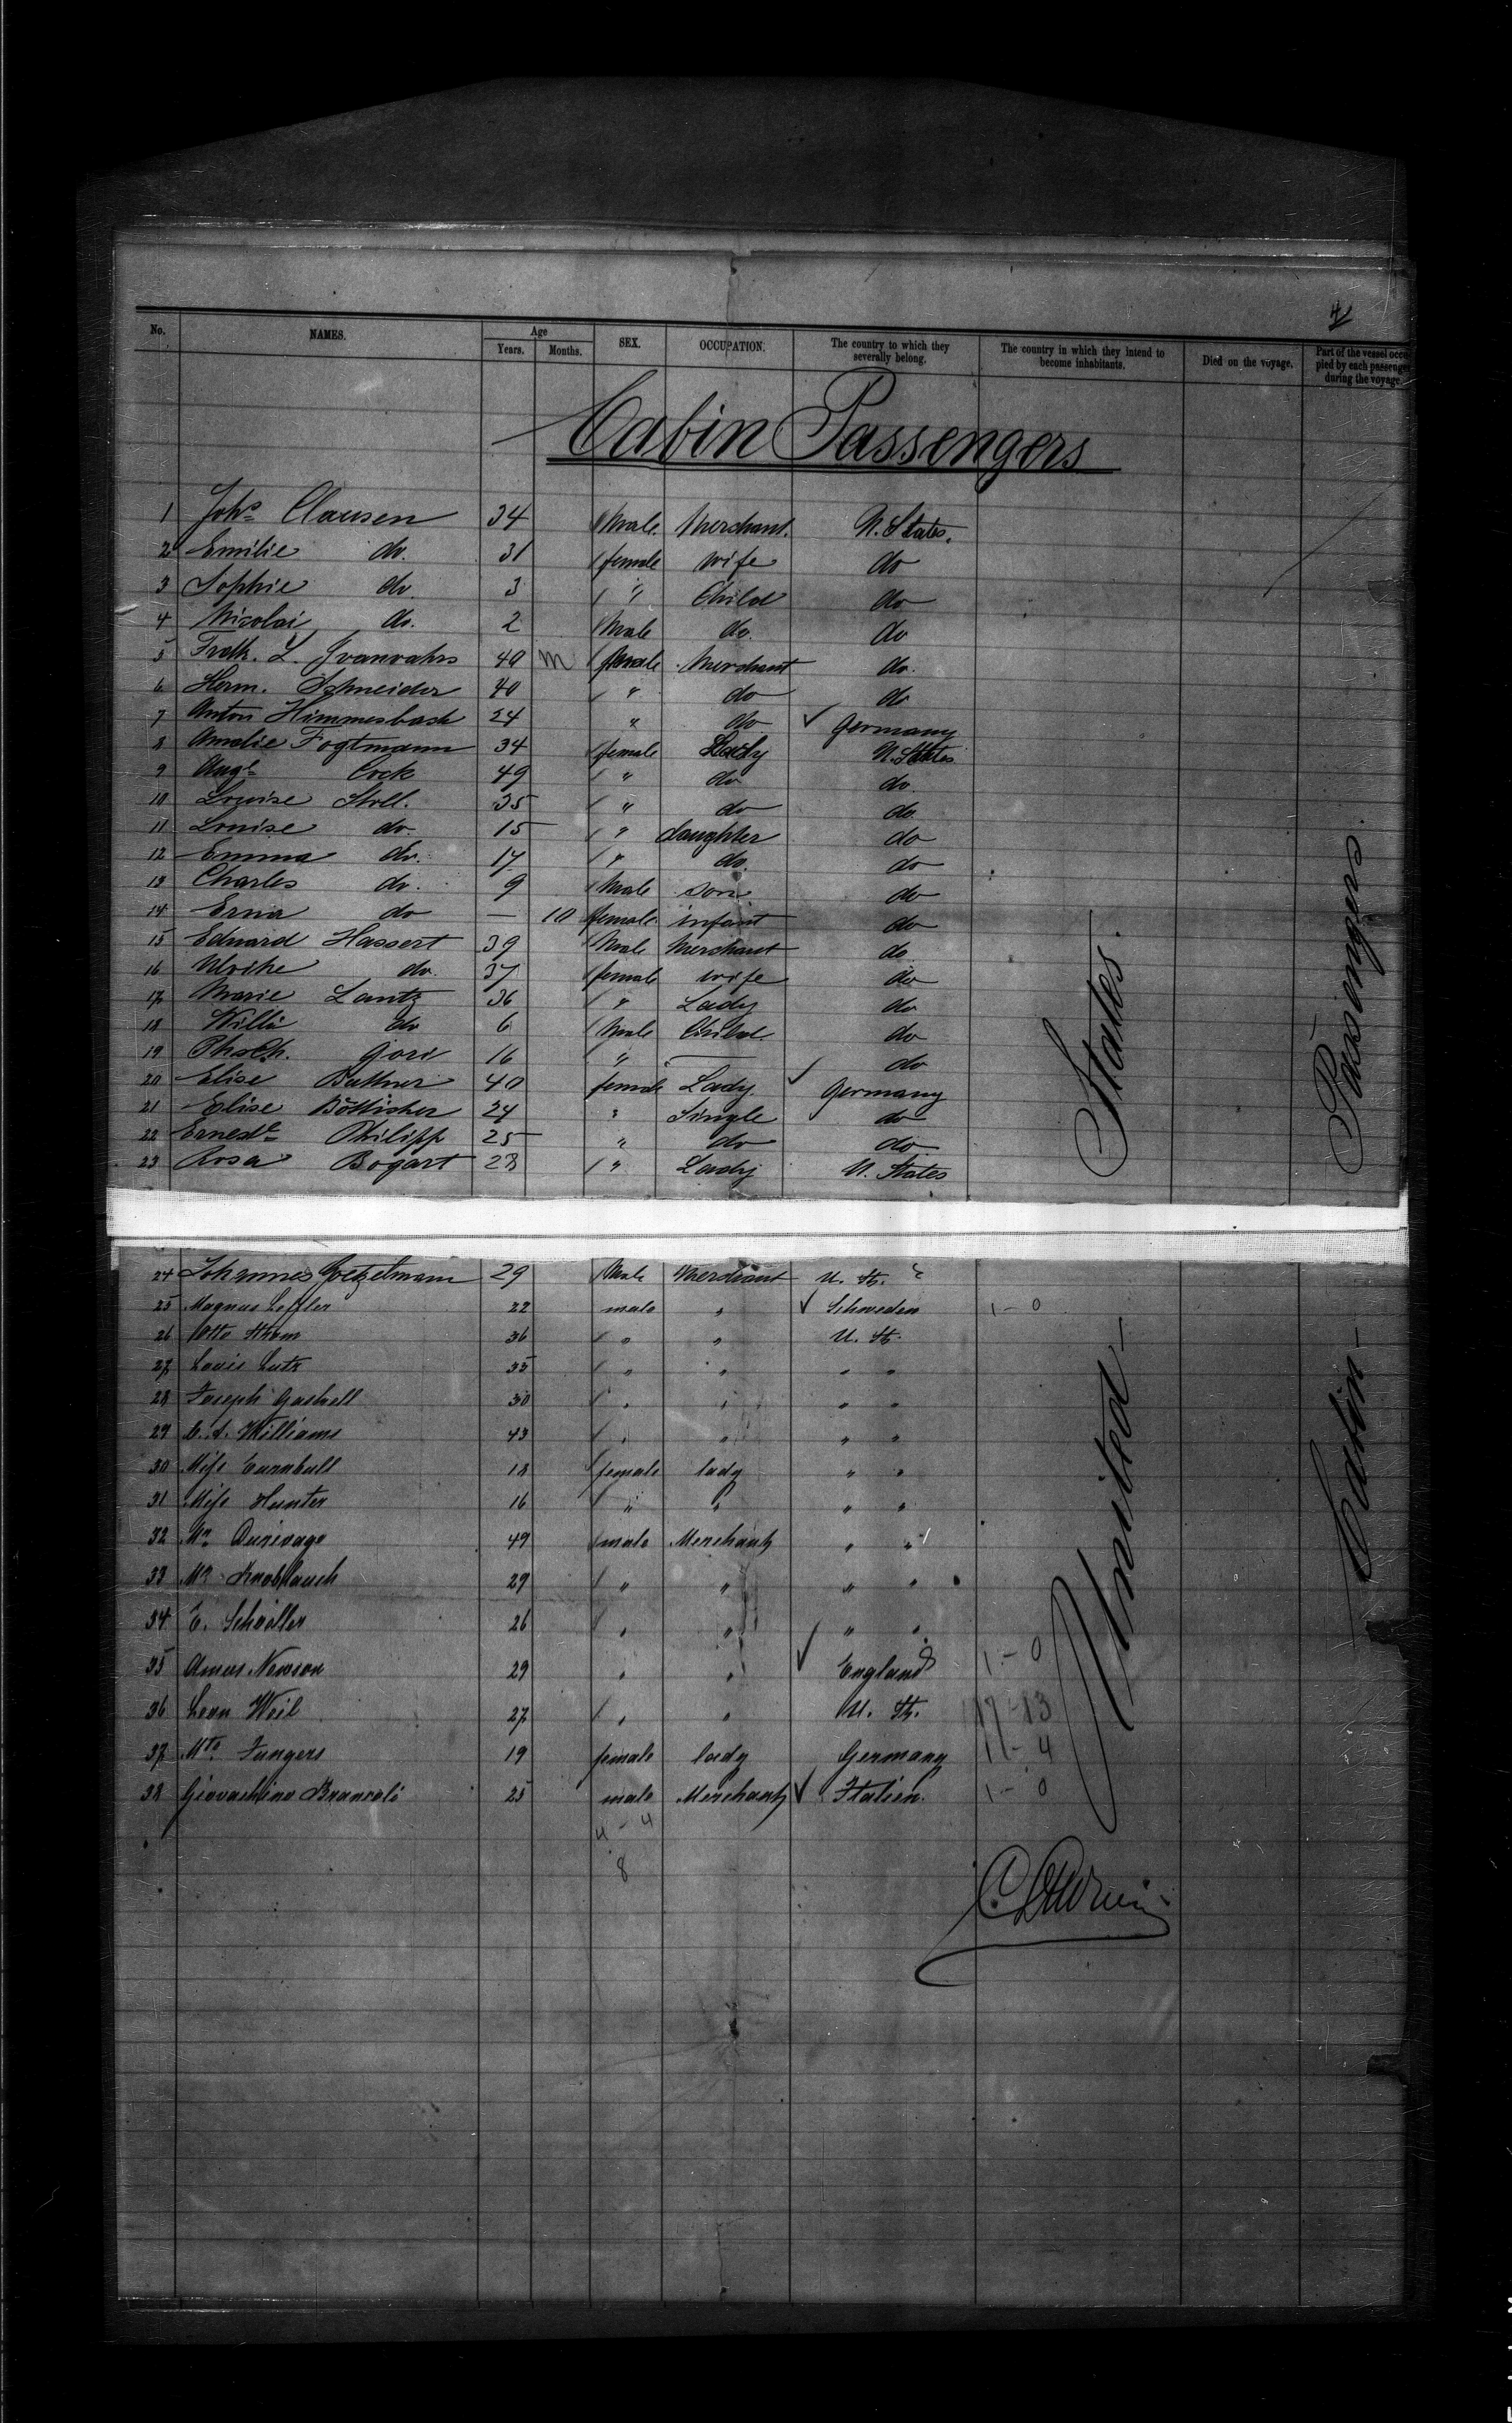 4
No. NAMES. Age Years. Months. SEX. OCCUPATION. The country to which they severally belong. The country in which they intend to become inhabitants. Died on the voyage. Part of the vessel occupied by each passenger during the voyage.
Cabin Passengers
1 Johs Clausen 34 Male. Merchant. U. States.
2 Emilie do. 31 female wife do
3 Sophie do. 3 " Child do
4 Nicolai do. 2 Male do. do
5 Fredk. L. 40 m male Merchant do.
6 Herm. Schneider 40 " do do
7 Anton Himmesbach 24 " do ✓ Germany
8 Amelie Fogtmann 34 female Lady U. States
9 Augte Cock 49 " do do.
10 Louise Stoll. 35 " do do.
11 Louise do. 15 " daughter do
12 Emma do. 17 " do. do
13 Charles do. 9 Male son do
14 Erna do — 10 female infant do
15 Eduard Hassert 39 Male Merchant do
16 Ulrike do. 37 female wife do
17 Marie Lantz 36 " Lady do
18 Willi do 6 Male Child. do
19 Gori 16 " — do
20 Elise Buttner 40 female Lady. ✓ Germany
21 Elise Böttisher 24 " Single do
22 Ernestе Philipp 25 " do do.
23 Rosa Bogart 28 " Lady U. States
24 Johannes Goetzelmann 29 Male Merchant U. St. "
25 Magnus Leffler 22 male " ✓ Schweden 1 - 0
26 Otto Strom 36 " " U. St.
27 Louis Lutz 35 " " " "
28 Joseph Gaskell 30 " " " "
29 C. A. Williams 43 " " " "
30 Miss Turnbull 18 female lady " "
31 Miss Hunter 16 " " " "
32 Mr. Durivage 49 male Merchant " "
33 Mr. Knoblauch 29 " " " "
34 E. Schidler 26 " " " "
35 Amus Newson 29 " " ✓ England 1 - 0
36 Leon Weil 27 " " U. St. 17-13
37 Mrs. Jungers 19 female lady Germany 11-4
38 Giovachino Brancoli 25 male Merchant ✓ Italien. 1 - 0
4 - 4
8
United States.
Cabin Passengers